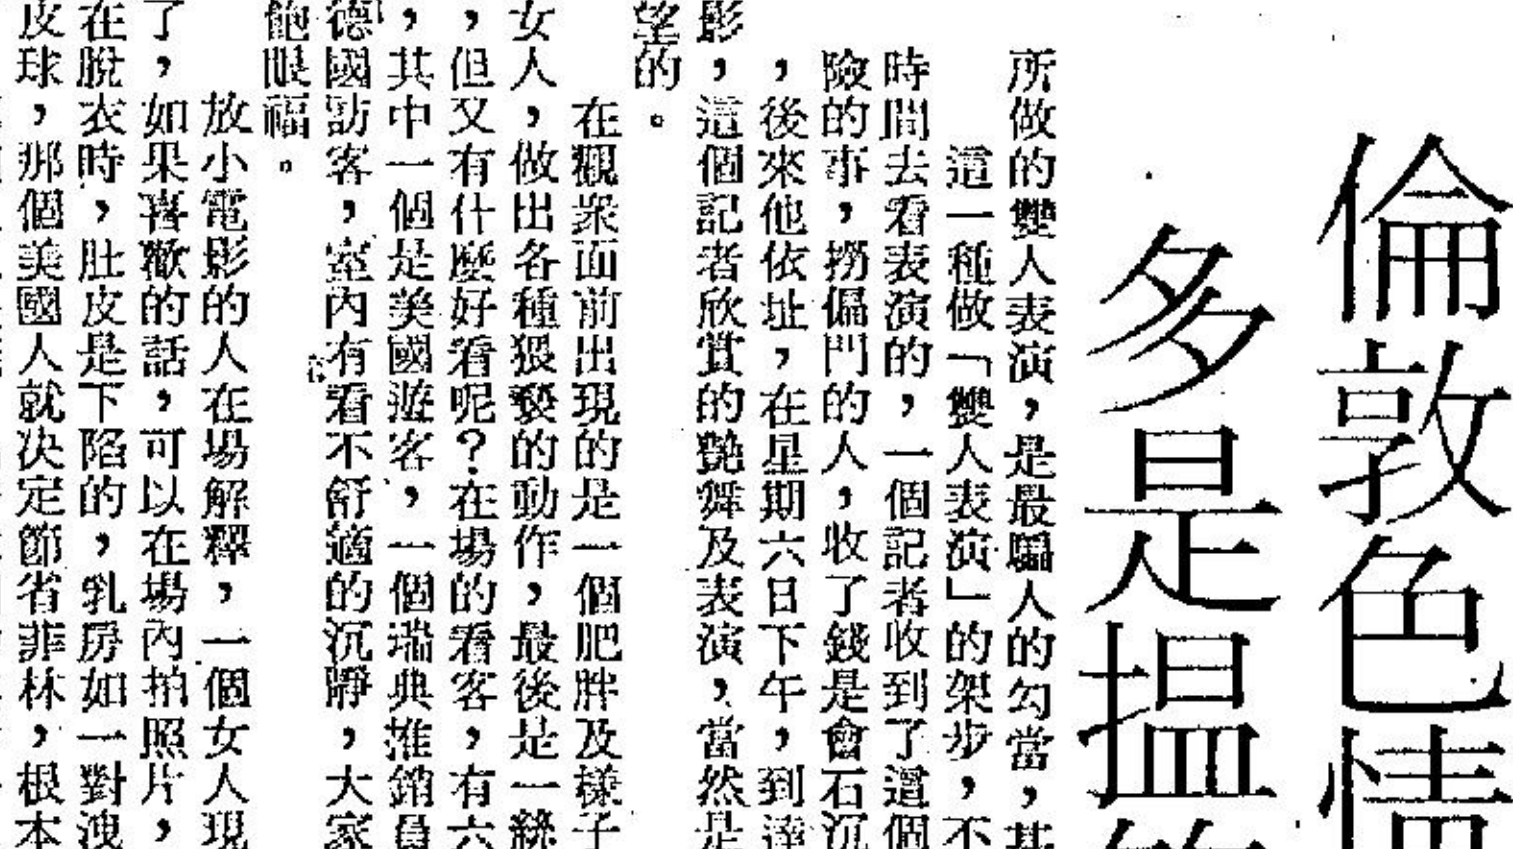 倫敦色情
多是搵
所做的雙人表演，是最騙人的勾當，其
這一種做「雙人表演」的架步，不
時間去看表演的，一個記者收到了這個
險的事，撈偏門的人，收了錢是會石沉
，後來他依址，在星期六日下午，到達
影，這個記者欣賞的艷舞及表演，當然是
望的。
在觀衆面前出現的是一個肥胖及樣子
女人，做出各種猥褻的動作，最後是一絲
，但又有什麼好看呢？在場的看客，有六
，其中一個是美國遊客，一個瑞典推銷員
德國訪客，室內有看不舒適的沉靜，大家
飽眼福。
放小電影的人在場解釋，一個女人現
了，如果喜歡的話，可以在場內拍照片，
在脫衣時，肚皮是下陷的，乳房如一對洩
皮球，那個美國人就決定節省菲林，根本